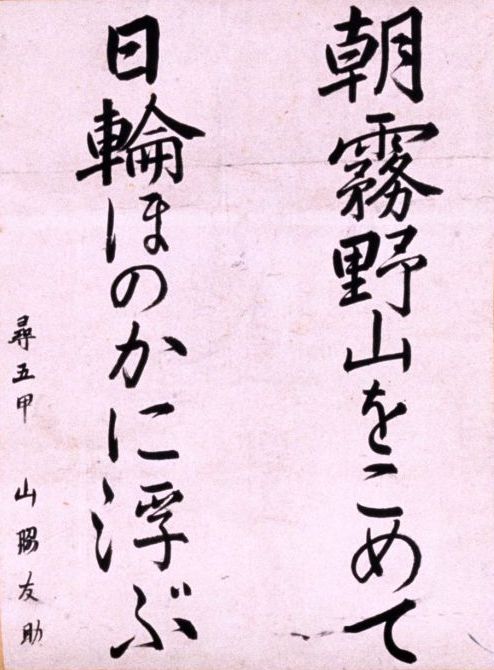 朝霧野山をこめて
日輪ほのかに浮ぶ
尋五甲 山脇友助